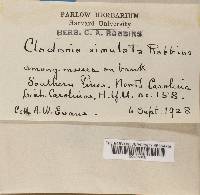 FARLOW HERBARIUM
Harvard University
HERB. C. A. ROBBINS
Cladonia simulata Robbins
among mosses on bank
Southern Pines, North Carolina
Lich. Carolinae, no. 158.
Coll. A. W. Evans 4 Sept. 1928